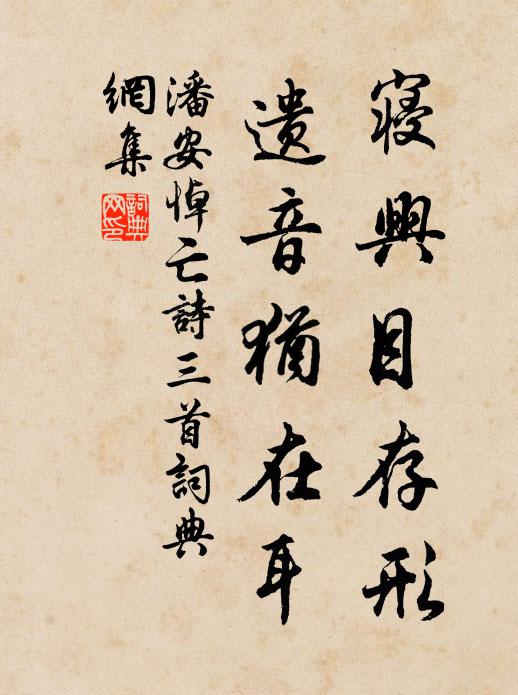 寢興目存形
遺音猶在耳
潘安悼亡詩三首詞典
網集
詞典
网印